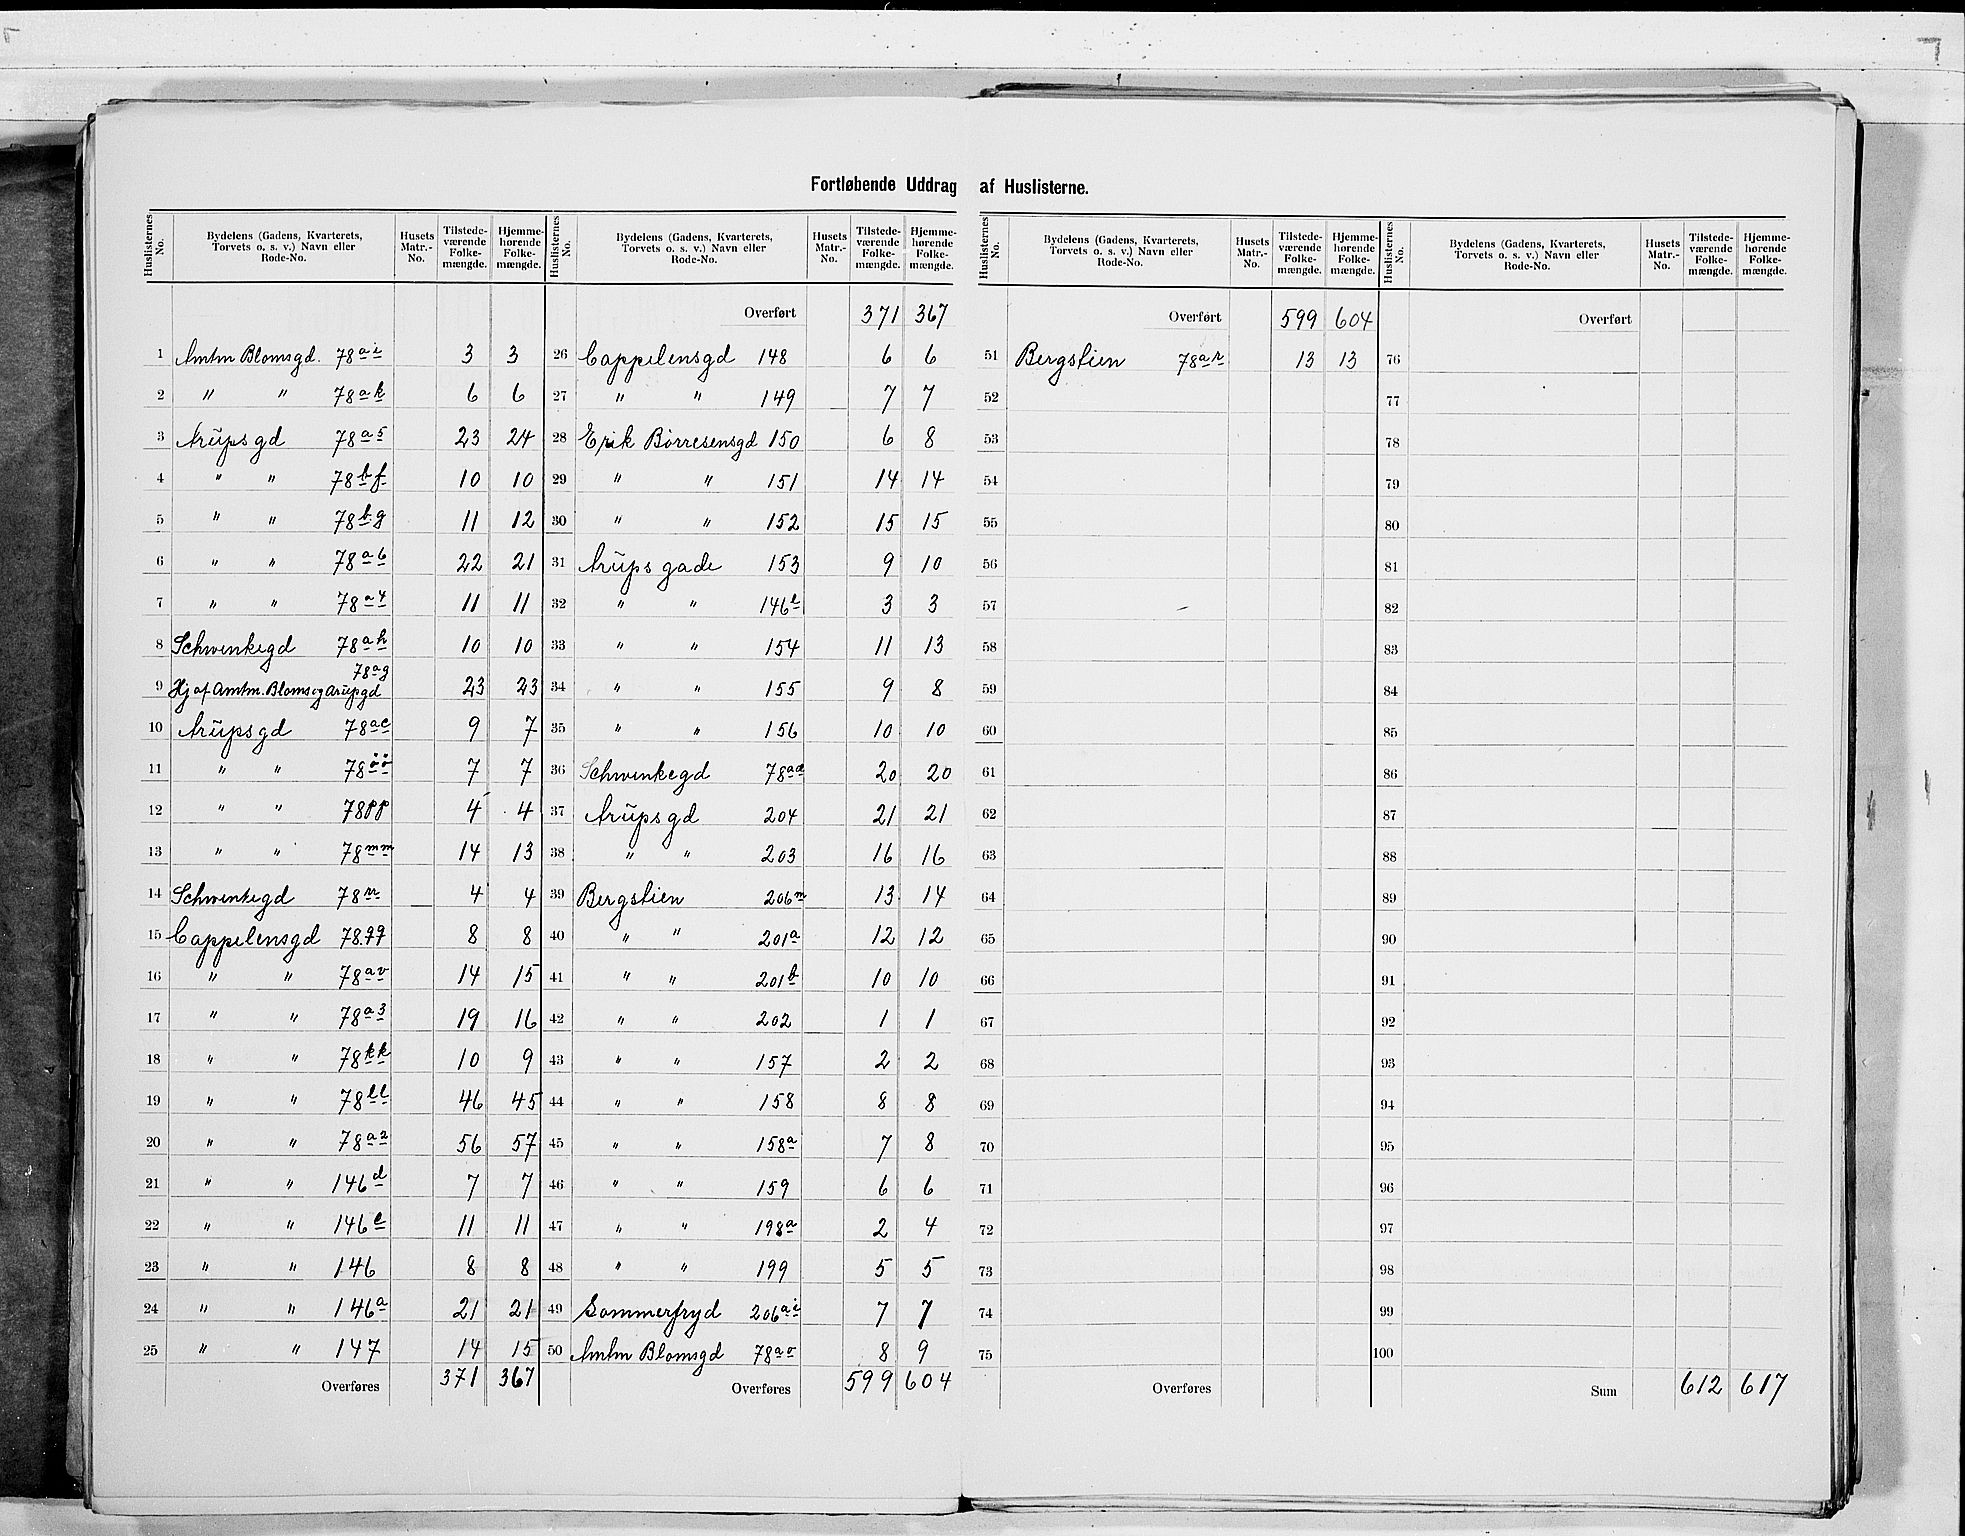 Fortløbende Uddrag af Huslisterne.
Huslisternes No. Bydelens (Gadens, Kvarterets, Torvets o. s. v.) Navn eller Rode-No. Husets Matr.-No. Tilstedeværende Folkemængde. Hjemmehørende Folkemængde.
1 Amtm Blomsgd. 78ai 3 3
2 " " 78ak 6 6
3 Arupsgd 78a5 23 24
4 " " 78bf 10 10
5 " " 78bg 11 12
6 " " 78a6 22 21
7 " " 78a4 11 11
8 Schwenkegd 78ah 10 10
9 Hj af Amtm. Bloms og Arupgd 78ag 23 23
10 Arupsgd 78ae 9 7
11 " " 78öö 7 7
12 " " 78pp 4 4
13 " " 78mm 14 13
14 Schwenkegd 4 4
15 Cappelensgd 78qq 8 8
16 " " 78av 14 15
17 " " 78a3 19 16
18 " " 78kk 10 9
19 " " 78ll 46 45
20 " " 78a2 56 57
21 " " 146d 7 7
22 " " 146e 11 11
23 " " 146 8 8
24 " " 146a 21 21
25 " " 147 14 15
Overføres 371 367
Huslisternes No. Bydelens (Gadens, Kvarterets, Torvets o. s. v.) Navn eller Rode-No. Husets Matr.-No. Tilstedeværende Folkemængde. Hjemmehørende Folkemængde.
Overført 371 367
26 Cappelensgd 148 6 6
27 " " 149 7 7
28 Erik Børresensgd 150 6 8
29 " " 151 14 14
30 " " 152 15 15
31 Arups gade 153 9 10
32 " " 146l 3 3
33 " " 154 11 13
34 " " 155 9 8
35 " " 156 10 10
36 Schwenkegd 20 20
37 Arupsgd 204 21 21
38 " " 203 16 16
39 Bergstien 206m 13 14
40 " " 201a 12 12
41 " " 201b 10 10
42 " " 202 1 1
43 " " 157 2 2
44 " " 158 8 8
45 " " 158a 7 8
46 " " 159 6 6
47 " " 198a 2 4
48 " " 199 5 5
49 Sommerfryd 206ai 7 7
50 Amtm Blomsgd 8 9
Overføres 599 604
Huslisternes No. Bydelens (Gadens, Kvarterets, Torvets o. s. v.) Navn eller Rode-No. Husets Matr.-No. Tilstedeværende Folkemængde. Hjemmehørende Folkemængde.
Overført 599 604
51 Bergstien 78ar 13 13
52
53
54
55
56
57
58
59
60
61
62
63
64
65
66
67
68
69
70
71
72
73
74
75
Overføres
Huslisternes No. Bydelens (Gadens, Kvarterets, Torvets o. s. v.) Navn eller Rode-No. Husets Matr.-No. Tilstedeværende Folkemængde. Hjemmehørende Folkemængde.
Overført
76
77
78
79
80
81
82
83
84
85
86
87
88
89
90
91
92
93
94
95
96
97
98
99
100
Sum 612 617